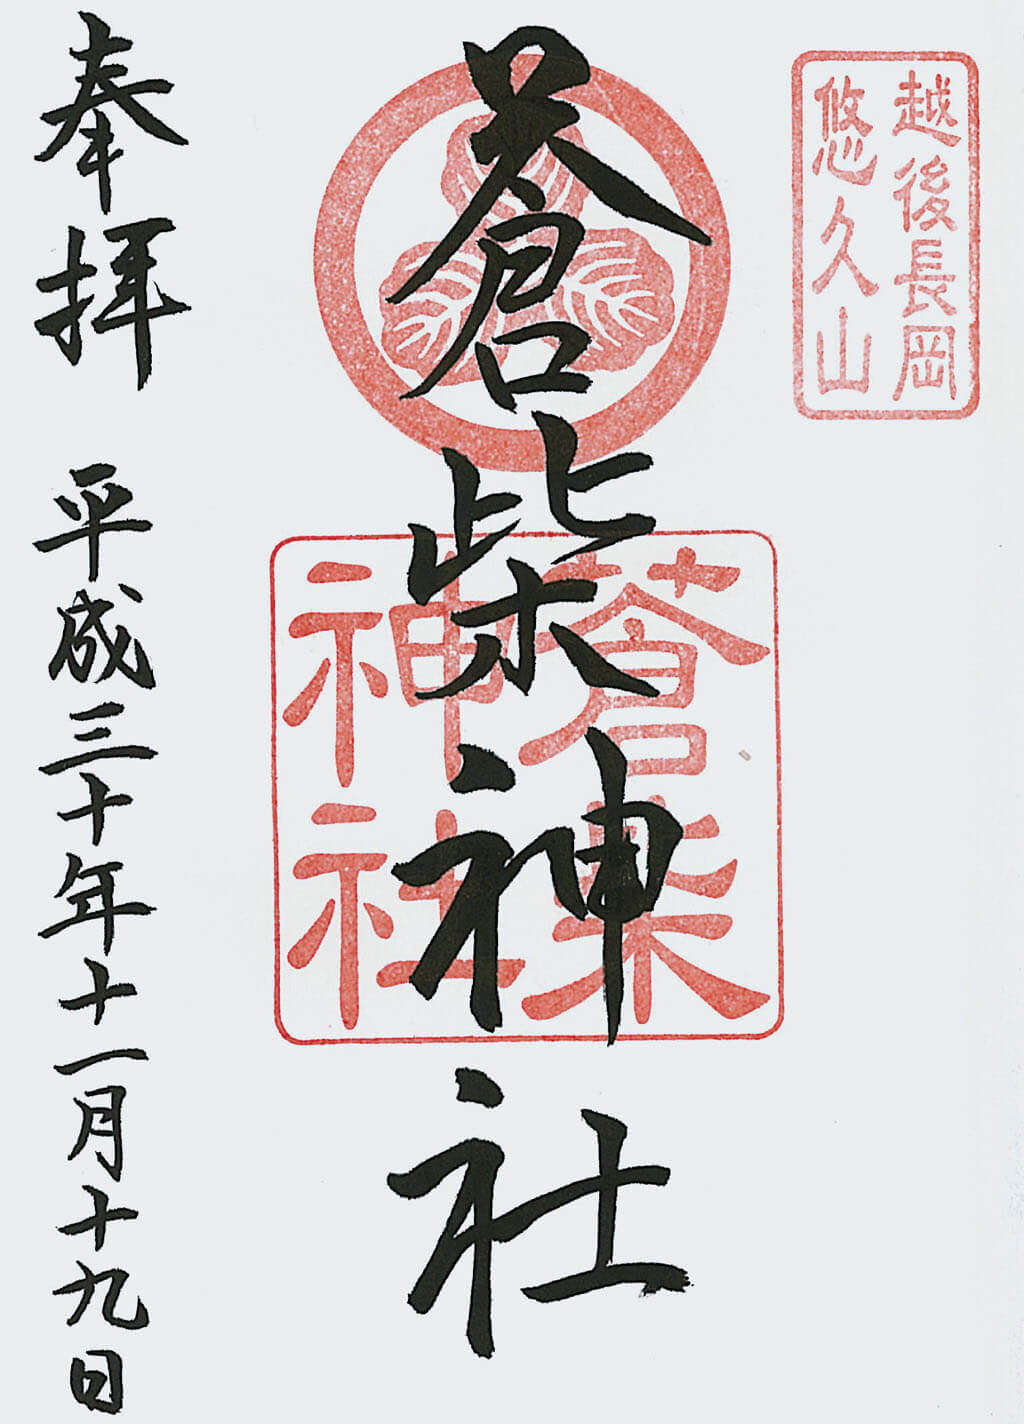 越後長岡
悠久山
蒼柴神社
蒼柴
神社
奉拝 平成三十年十一月十九日